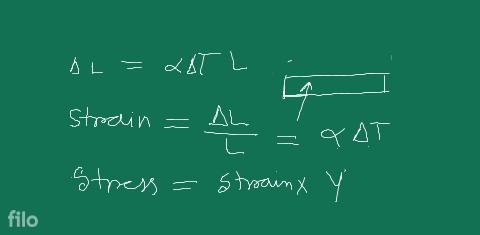 ΔL = αΔT L
Strain = ΔL/L = αΔT
Stress = Strain x Y
filo